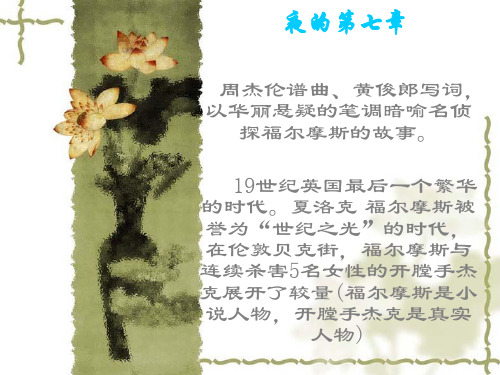 夜的第七章
周杰伦谱曲、黄俊郎写词，
以华丽悬疑的笔调暗喻名侦
探福尔摩斯的故事。
19世纪英国最后一个繁华
的时代。夏洛克 福尔摩斯被
誉为“世纪之光”的时代，
在伦敦贝克街，福尔摩斯与
连续杀害5名女性的开膛手杰
克展开了较量(福尔摩斯是小
说人物，开膛手杰克是真实
人物)